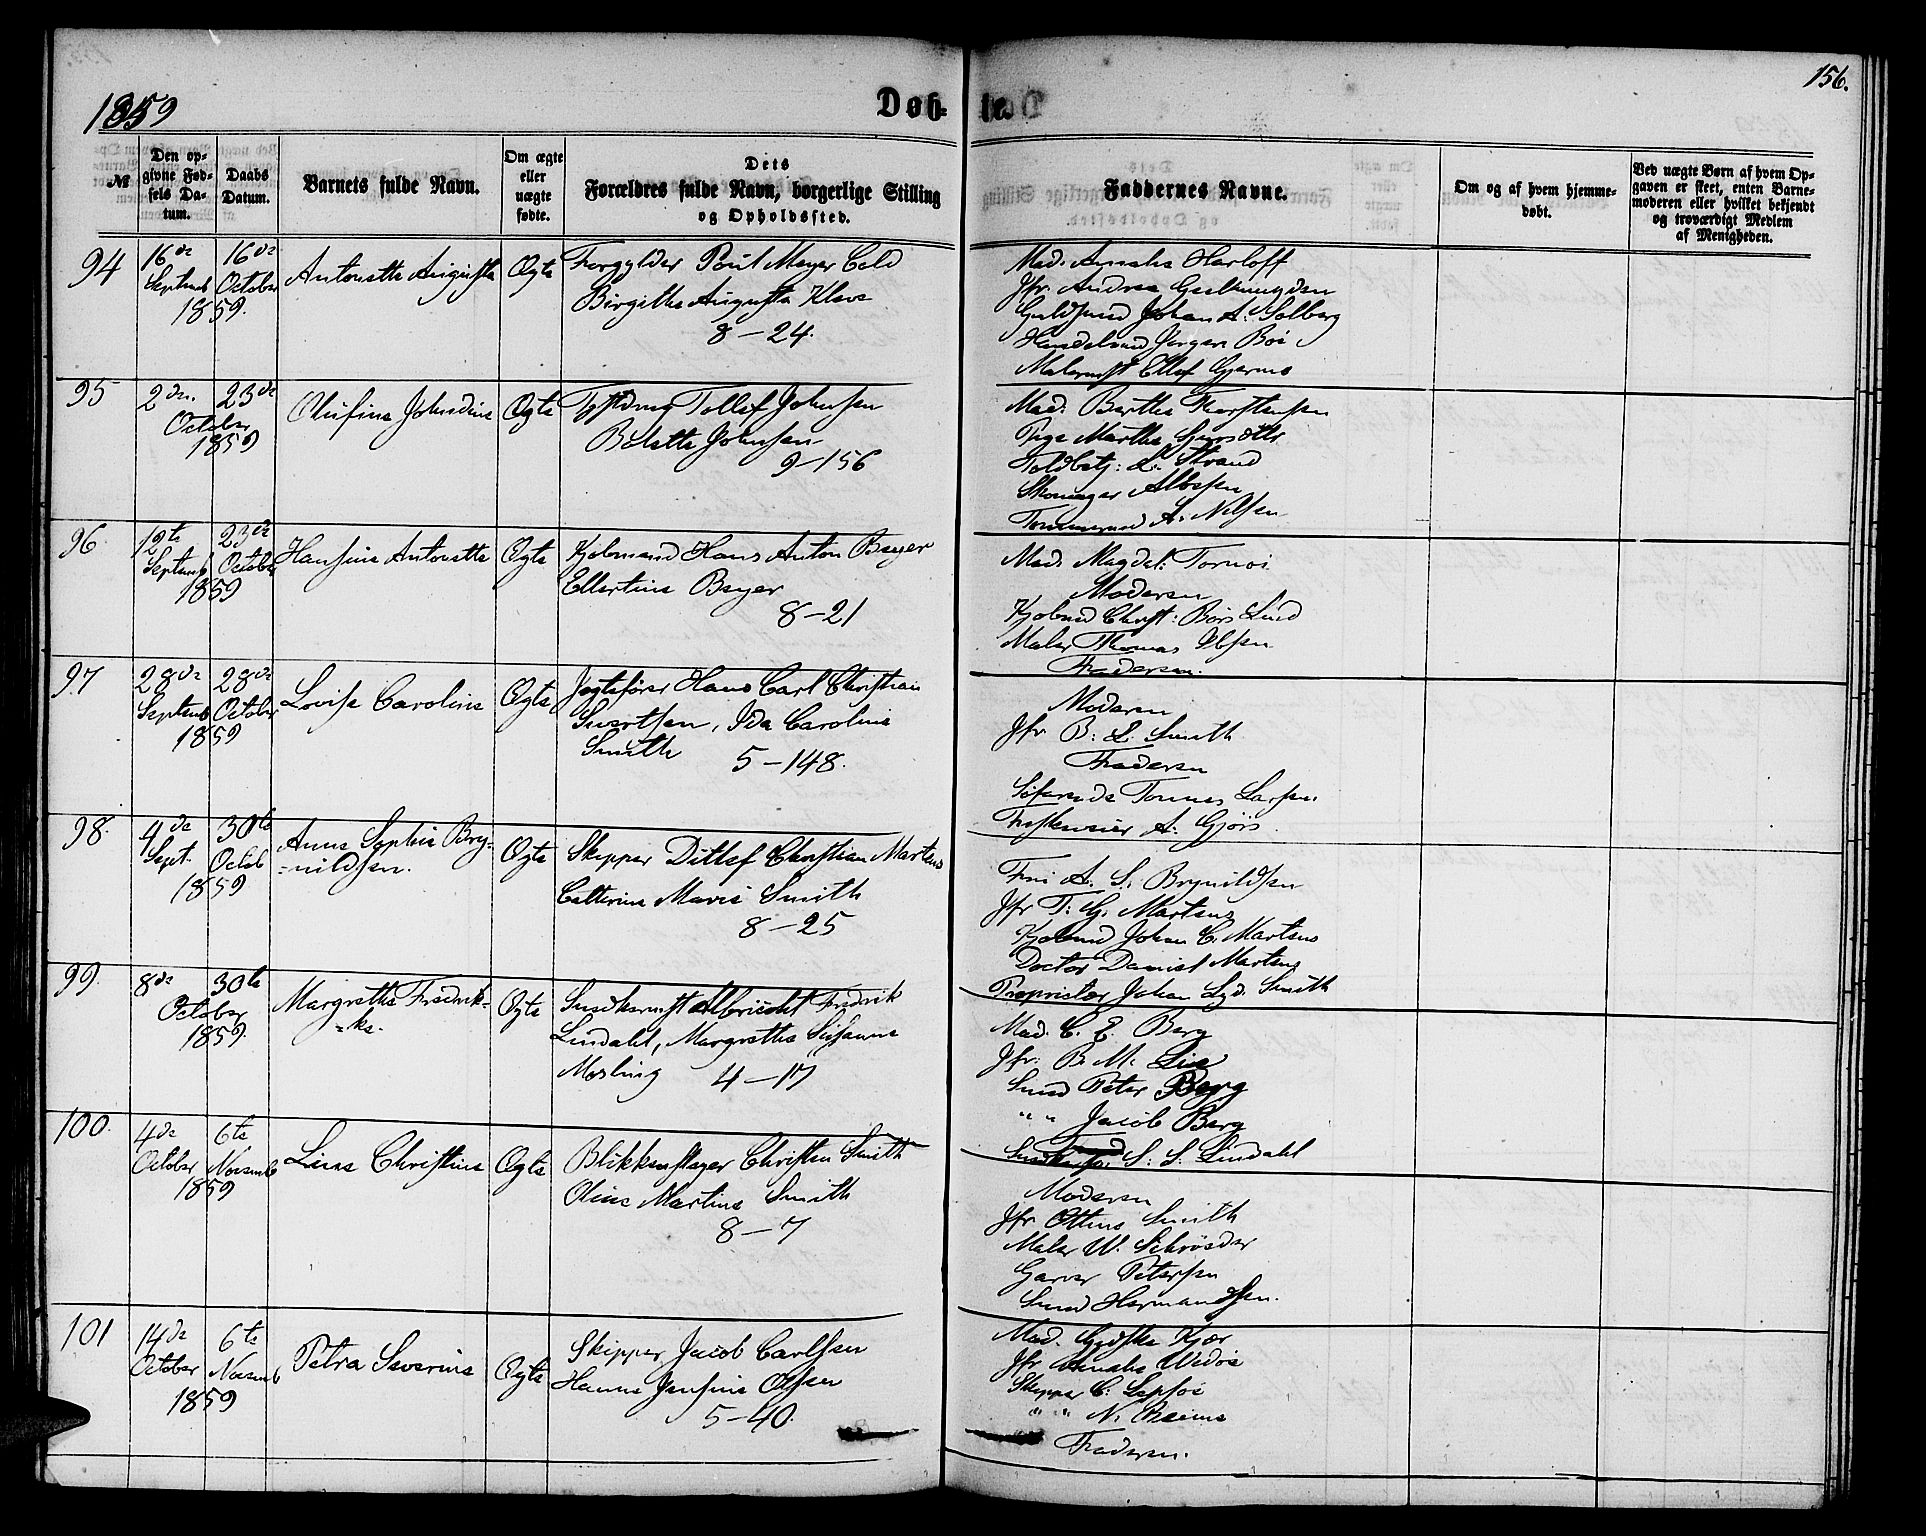 1859
Døb-
te.
156.
№
Den op-
givne Fød-
sels Da-
tum.
Daabs
Datum.
Barnets fulde Navn.
Om ægte
eller
uægte
fødte.
Dets
Forældres fulde Navn, borgerlige Stilling
og Opholdssted.
Faddernes Navne.
Om og af hvem hjemme-
døbt.
Ved uægte Børn af hvem Op-
gaven er skeet, enten Barne-
moderen eller hvilket bekjendt
og troværdigt Medlem
af Menigheden.
94
16de
Septemb
1859.
16de
October
Antonette Augusta
Ægte
Forgylder Poul Meyer
Birgitha Augusta
8-24.
Mad. Amalia Harloff
Jfr. Andrea
Johan A. Solberg
Jørgen Bøe
Ellef
95
2den
October
1859
23de
Olufine Johndine
Ægte
Tollef Johnsen
Bolette Johnsen
9-156
Mad. Berthe Thorstensen
Pige Marthe
Toldbetj: L. Strand
Skomager
A. Nilsen
96
12te
Septemb
1859
23de
October
Hansine Antonette
Ægte
Kjøbmand Hans Anton Beyer
Ellertine Beyer
8-21
Mad. Magdel: Tornøe
Moderen
Kjøbmd Christ: Børs Lund
Maler Thomas
Faderen.
97
28de
Septemb
1859
28de
October
Lovise Caroline
Ægte
Jægtefører Hans Carl Christian
Sivertsen, Ida Caroline
Smith
5-148.
Moderen
Jfr B. L. Smith
Faderen
Søfarende Tønnes Larsen
A. Gjørs.
98.
4de
Sept.
1859
30te
Octob
Anne Sophie Bry-
=nildsen.
Ægte
Skipper Ditlef Christian Martens
Cathrine Marie Smith
8-25
Fru A. S. Brynildsen
Jfr T. G. Martens
Kjøbmd Johan C. Martens
Doctor Daniel Martens
Proprietær Johan Lyd. Smith
99.
8de
October
1859.
30te
Margrethe Fredrik=
=ke.
Ægte
Albricht Fredrik
Lindahl, Margrethe Susanne
Mosling
4-17
Mad. C. E. Berg
Jfr. B. M. Lie
Smed Peter Berg
" " Jacob Berg
S. S. Lindahl
100.
4de
October
1859
6te
Novemb
Line Christine
Ægte
Blikkenslager Christen Smith
Oline Martine Smith
8-7
Moderen
Jfr Ottine Smith
Maler W. Schrøeder
Garver Petersen
Smed Hermandsen.
101
14de
October
1859
6te
Novemb
Petra Severine
Ægte
Skipper Jacob Carlsen
Hanne Jensine Olsen
5-40.
Mad. Kjær
Jfr. Amalia Wedøe
Skipper C. Sepsøe
" " N.
Faderen.